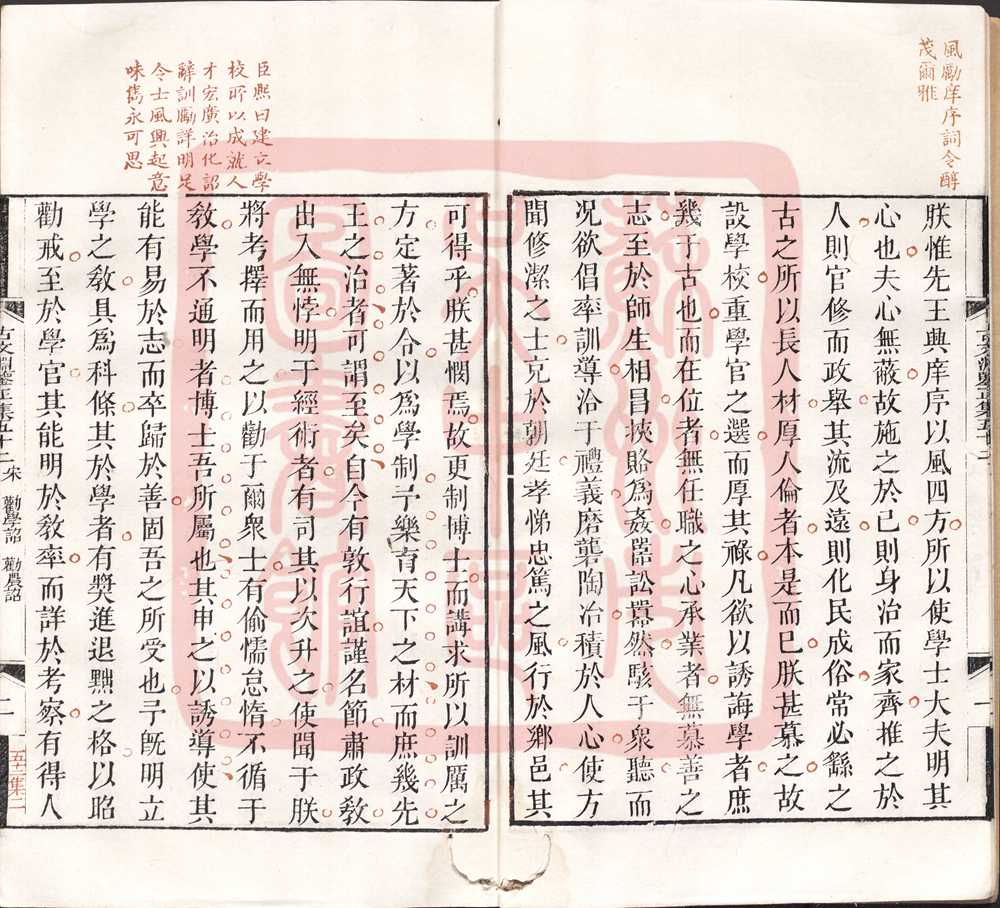 風勵庠序詞令醇
茂爾雅
朕惟先王興庠序以風四方所以使學士大夫明其
心也夫心無蔽故施之於己則身治而家齊推之於
人則官修而政舉其流及遠則化民成俗常必繇之
古之所以長人材厚人倫者本是而已朕甚慕之故
設學校重學官之選而厚其祿凡欲以誘誨學者庶
幾于古也而在位者無任職之心承業者無慕善之
志至於師生相冒挾賂為姦嚚訟囂然駭于眾聽而
況欲倡率訓導洽于禮義磨礱陶冶積於人心使方
聞修潔之士充於朝廷孝悌忠篤之風行於鄉邑其
臣熙曰建立學
校所以成就人
才宏廣治化詔
辭訓勵詳明足
令士風興起意
味雋永可思
可得乎朕甚憫焉故更制博士而講求所以訓厲之
方定著於令以為學制予樂育天下之材而庶幾先
王之治者可謂至矣自今有敦行誼謹名節肅政教
出入無悖明于經術者有司其以次升之使聞于朕
將考擇而用之以勸于爾眾士有偷懦怠惰不循于
敎學不通明者博士吾所屬也其申之以誘導使其
能有易於志而卒歸於善固吾之所受也予旣明立
學之敎具爲科條其於學者有獎進退黜之格以昭
勸戒至於學官其能明於敎率而詳於考察有得人
古文淵鑒正集五十二 宋 勸學詔 勸農詔
二
五十二集二